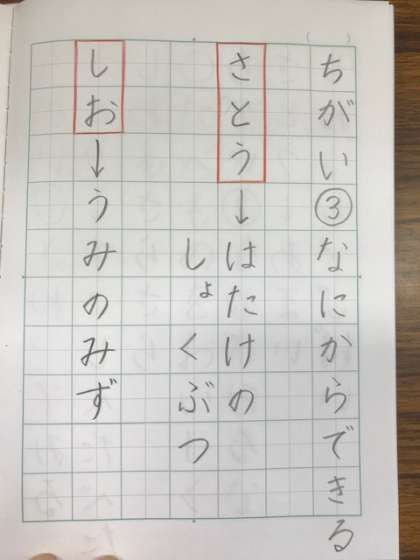 ちがい③なにからできる
さとう→はたけの
しょくぶつ
しお→うみのみず